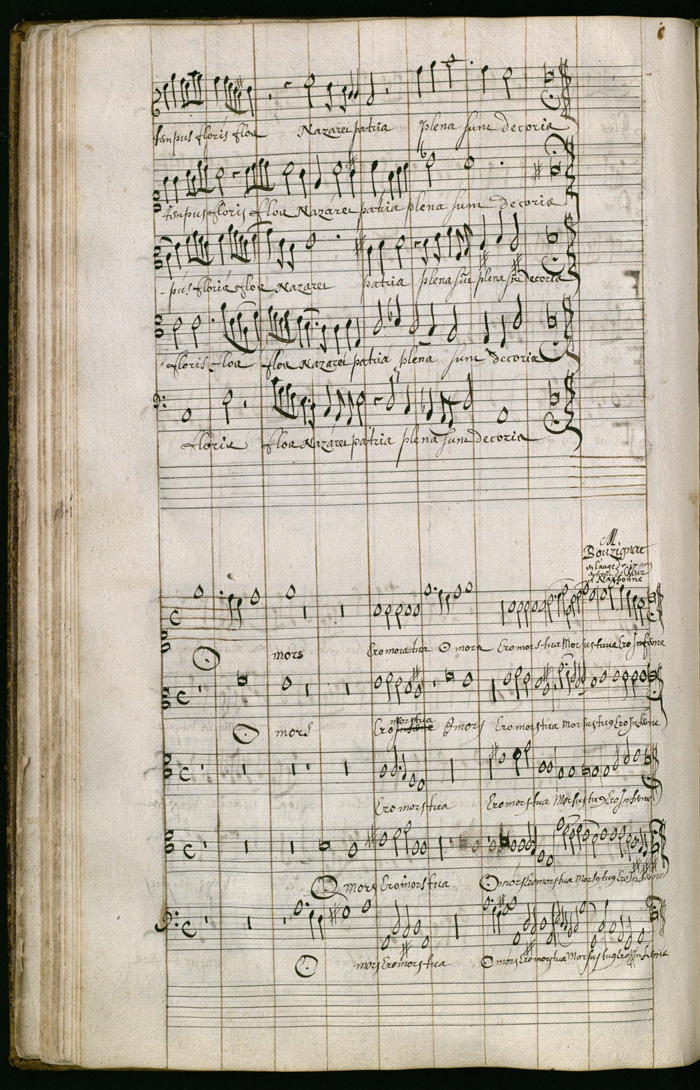 tempus floris floa Nazaret patria plena sunt decoris
tempus floris floa Nazáret patria plena sunt decoris
-pus floris floa Nazaret patria plena sūt plena sūt decoris
floris floa floa Nazaret patria plenā sunt decoris
floris floa Nazáret patria plenā sunt decoris
M.
Bouzignac
Narbonne
O mors Ero mors tua O mors Ero mors tua Morsus tuus Ero Inferne
O mors Ero mors tua O mors Ero mors tua morsus tuꝰ Ero Inferne
Ero mors tua Ero mors tua Morsus tuꝰ Ero Inferne
O mors Ero mors tua O mors Ero mors tua Morsus tuꝰ Ero Inferne
O mors Ero mors tua O mors Ero mors tua Morsus tuꝰ Ero Inferne